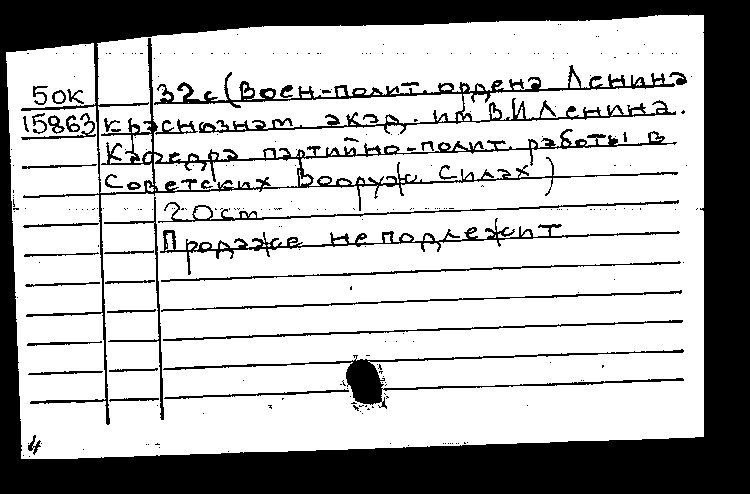 50к 32с (Воен.-полит. ордена Ленина
15863 краснознам. акад. им В.И Ленина.
Кафедра партийно-полит. работы в
Советских Вооруж. Силах)
20cm
Продаже не подлежит
4